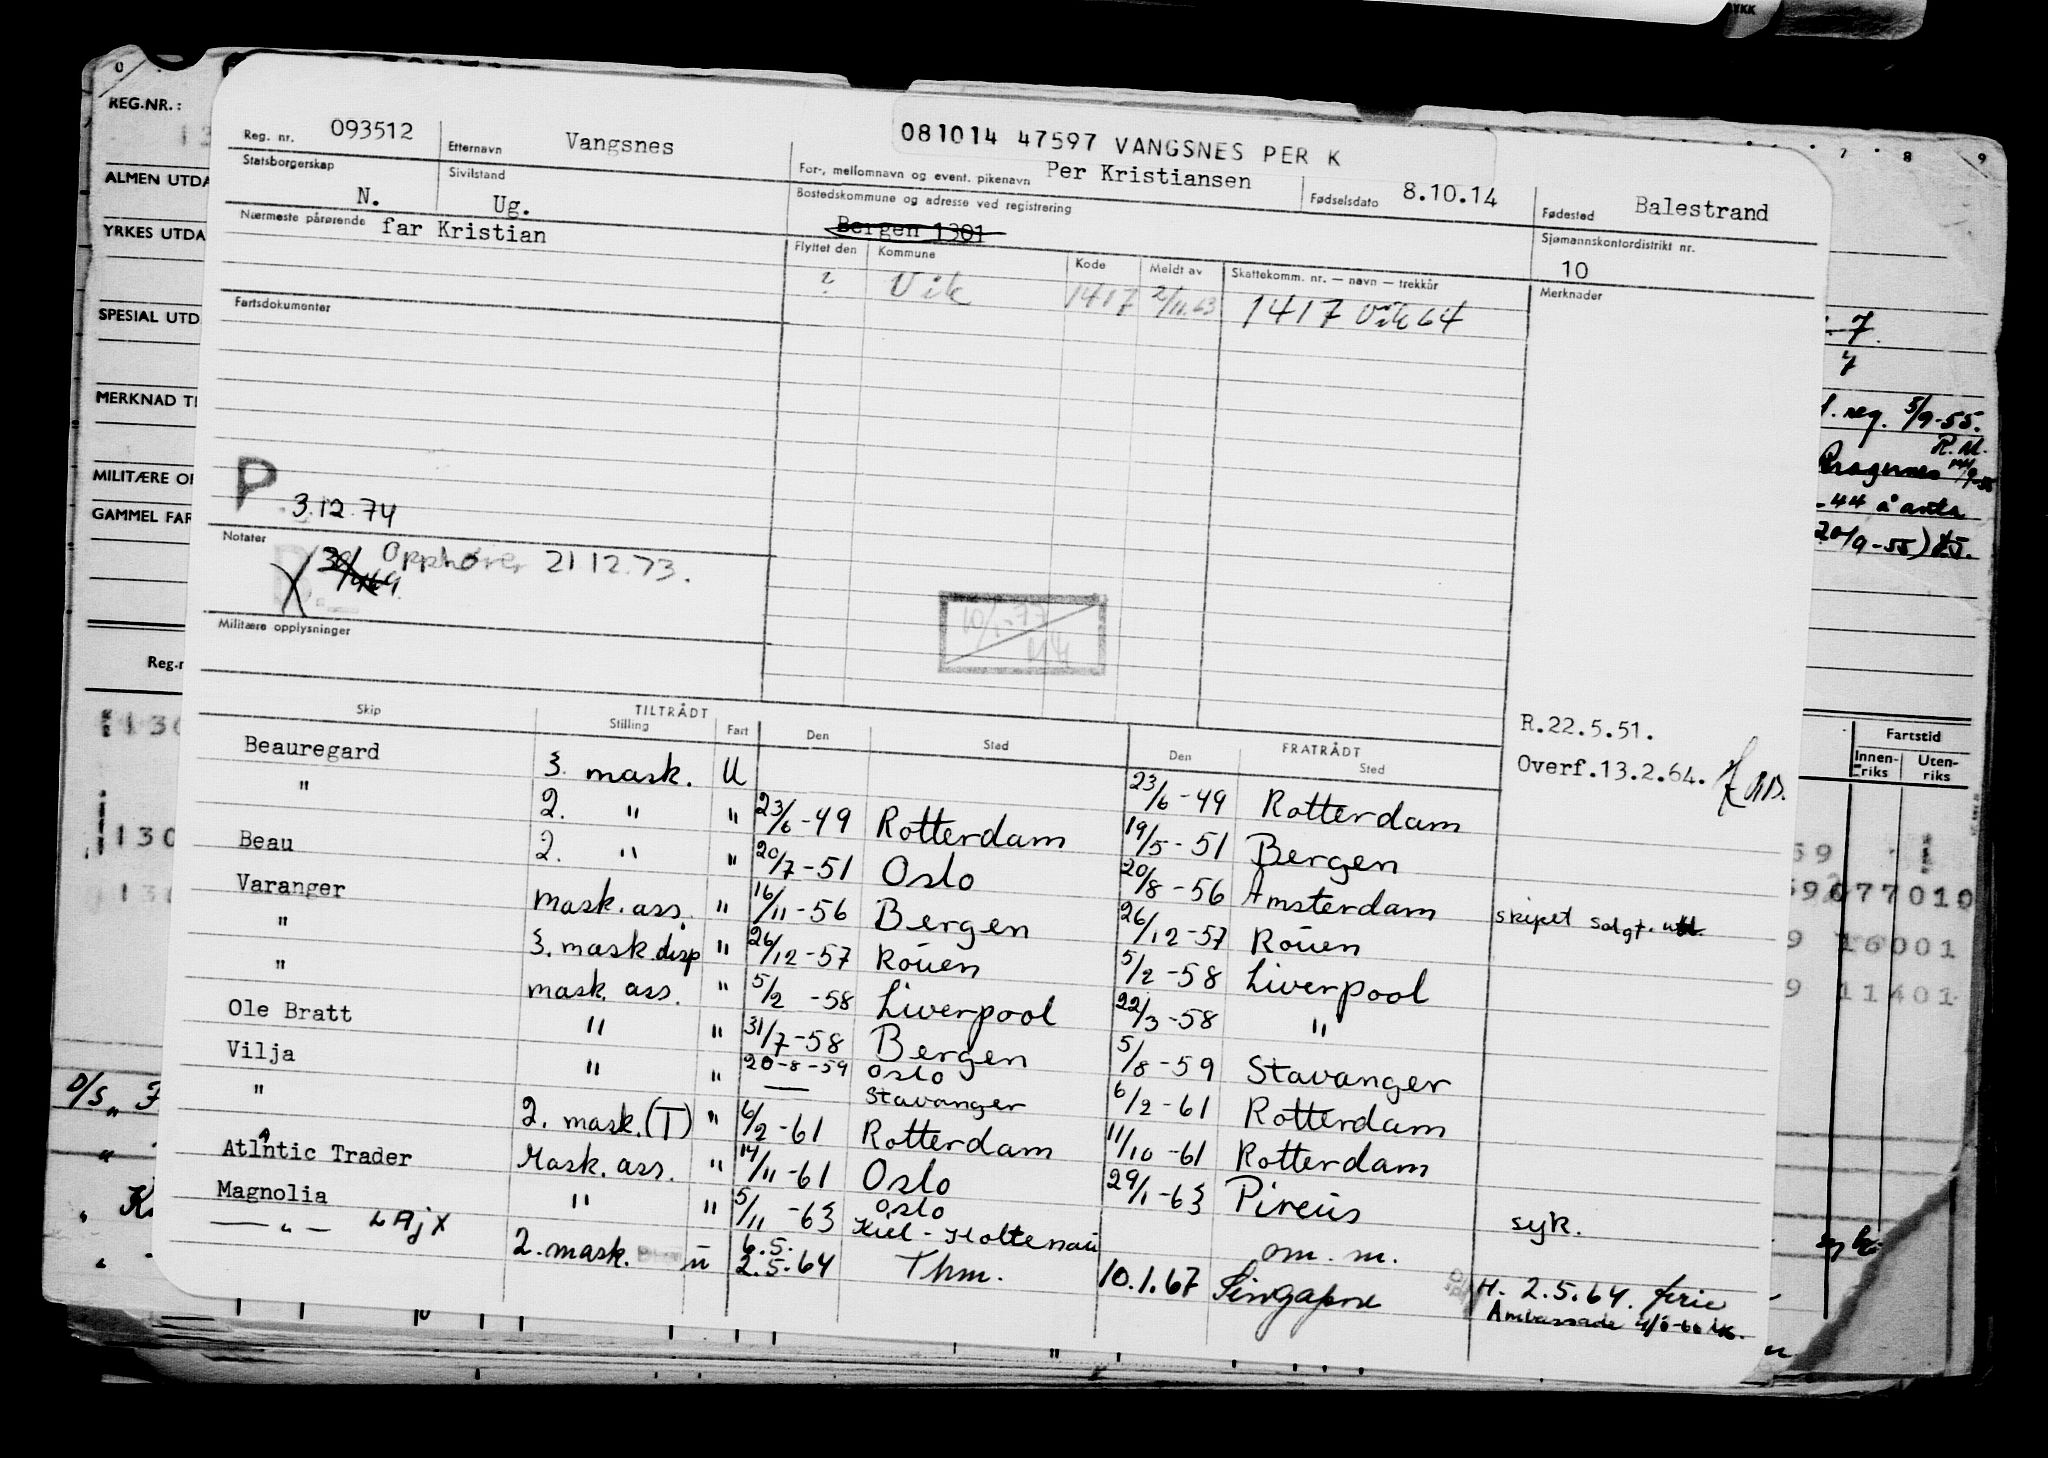 REG.NR.:
ALMEN UTDA
YRKES UTDA
SPESIAL UTD
MERKNAD TI
MILITÆRE OP
GAMMEL FAR
Reg.n
081014 47597 VANGSNES PER K
Reg. nr. 093512 Etternavn Vangsnes For-, mellomnavn og event. pikenavn Per Kristiansen Fødselsdato 8.10.14 Fødested Balestrand
Statsborgerskap N. Sivilstand Ug. Bostedskommune og adresse ved registrering Bergen 1301 Sjømannskontordistrikt nr. 10
Nærmeste pårørende far Kristian
Flyttet den Kommune Kode Meldt av Skattekomm. nr. — navn — trekkår Merknader
? Vik 1417 2/11.63 1417 Vik 64
Fartsdokumenter
P 3.12.74
Notater
Opphører 21 12.73.
10/1-77
Militære opplysninger
R.22.5.51.
Overf.13.2.64.
TILTRÅDT FRATRÅDT
Skip Stilling Fart Den Sted Den Sted
Beauregard 3. mask. U 23/6-49 Rotterdam
" 2. " " 23/6-49 Rotterdam 19/5-51 Bergen
Beau 2. " " 20/7-51 Oslo 20/8-56 Amsterdam skipet solgt. utl.
Varanger mask. ass. " 16/11-56 Bergen 26/12-57 Rouen
" 3. mask. disp " 26/12-57 Rouen 5/2-58 Liverpool
" mask. ass. " 5/2-58 Liverpool 22/3-58 "
Ole Bratt " " 31/7-58 Bergen 5/8-59 Stavanger
Vilja " " 20-8-59 Oslo Stavanger 6/2-61 Rotterdam
" 2. mask. (T) " 6/2-61 Rotterdam 11/10-61 Rotterdam
Atlantic Trader Mask. ass. " 14/11-61 Oslo 29/1-63 Pireus syk.
Magnolia " " 5/11-63 Oslo Kiel-Holtenau om. m.
— " — LAJX 2. mask. u 6.5. 2.5.64 Thm. 10.1.67 Singapore H. 2.5.64. ferie
Ambassade
7 8 9
. reg. 5/9-55.
R.M.
-44 å
20/9-55)
Fartstid
Innenriks Utenriks
077010
16001
11401
D/S